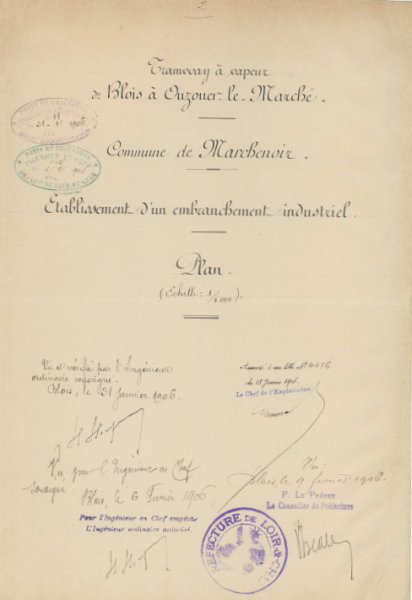 2
Tramway à vapeur
de Blois à Ouzouer-le-Marché.
Commune de Marchenoir.
Établissement d'un embranchement industriel.
Plan.
(Échelle : 1/1000).
PONTS ET CHAUSSÉES
1906
PONTS ET CHAUSSÉES
1906
DÉPART. DU LOIR ET CHER
Vu et vérifié par l'Ingénieur
ordinaire soussigné.
Blois, le 31 Janvier 1906.
Annexé à ma lettre N° 4416
du 15 Janvier 1906.
Le Chef de l'Exploitation
Vu par l'Ingénieur en Chef
soussigné
Blois, le 6 Février 1906
Pour l'Ingénieur en Chef empêché
L'Ingénieur ordinaire autorisé
Vu
Blois le 9 février 1906.
P. Le Préfet
Le Conseiller de Préfecture
PRÉFECTURE DE LOIR & CHER